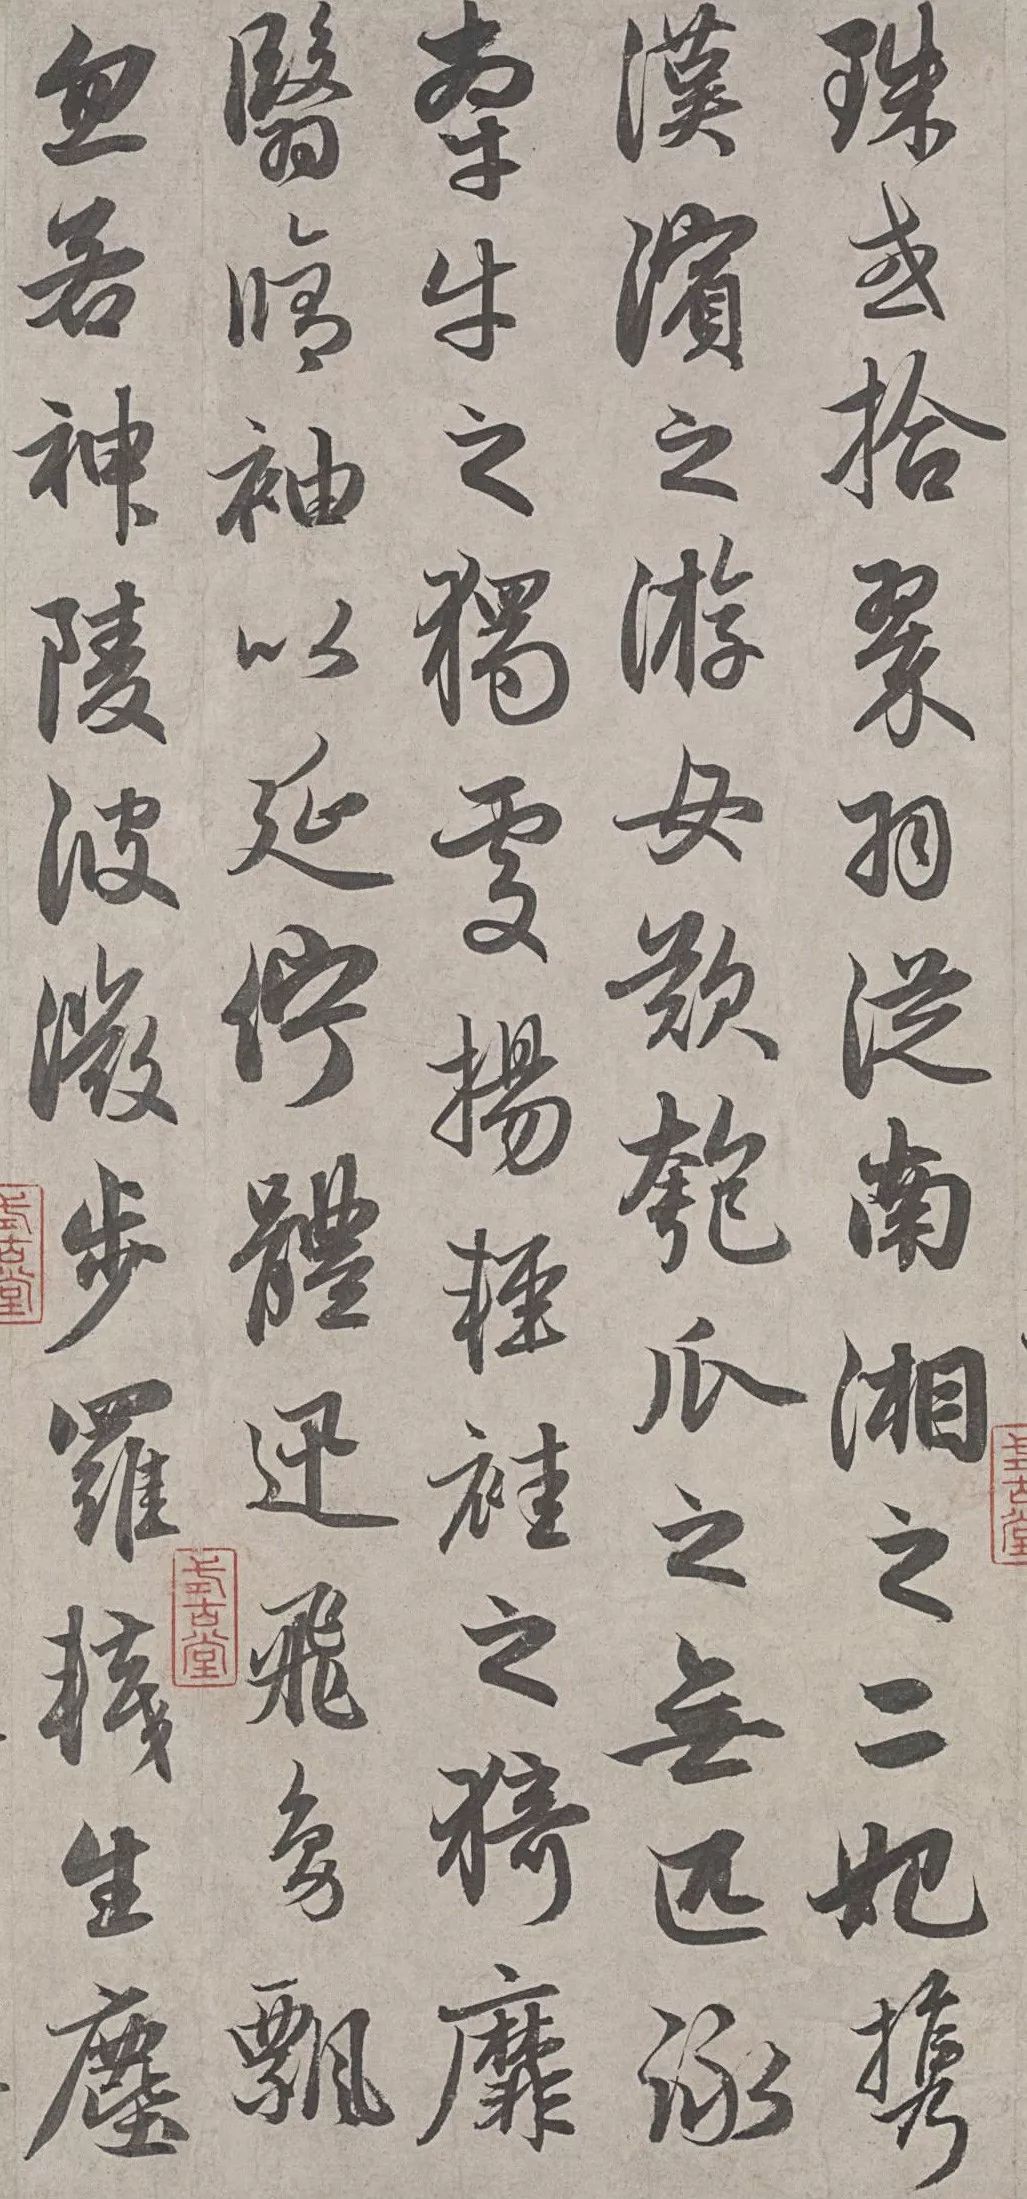 珠或拾翠羽從南湘之二妃携
漢濱之游女歎匏瓜之無匹詠
牽牛之獨處揚輕袿之猗靡
翳脩袖以延佇體迅飛鳧飄
忽若神陵波微步羅韈生塵
式古堂
式古堂
式古堂